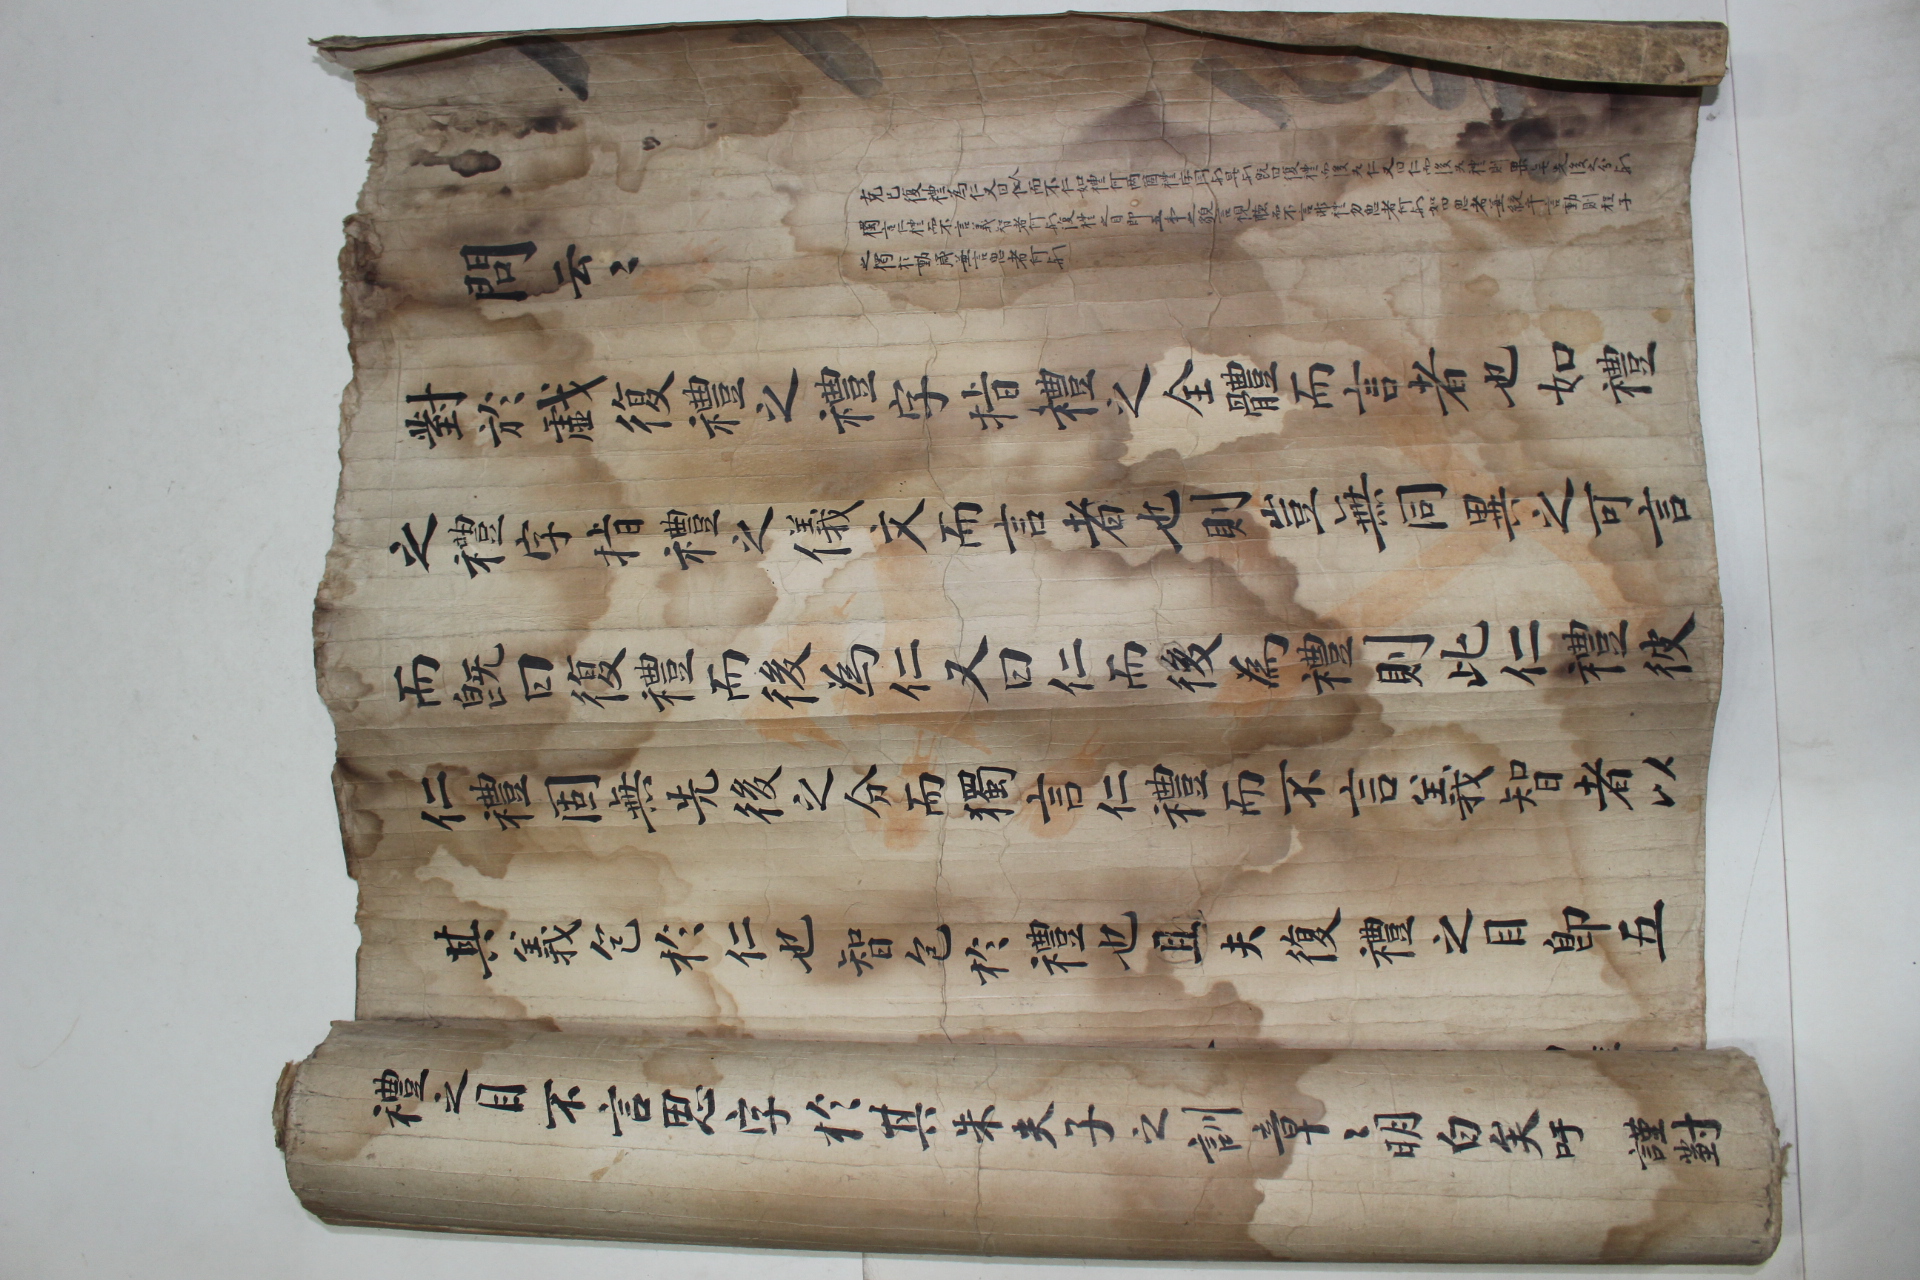 克己復禮爲仁又曰人而不仁如禮何兩箇禮字同歟異歟旣曰復禮而後爲仁又曰仁而後爲禮則果無先後之分歟
獨言仁禮而不言義智者何歟復禮之目卽五事之貌言視聽而不言非禮勿思者何歟如曰思者兼統乎言動則程子
之獨於動處兼言思者何歟
問云〻
對於戱復禮之禮字指禮之全體而言者也如禮
之禮字指禮之儀文而言者也則豈無同異之可言
而旣曰復禮而後為仁又曰仁而後為禮則此仁禮彼
仁禮固無先後之分而獨言仁禮而不言義智者以
其義包於仁也智包於禮也且夫復禮之目卽五
禮之目不言思字於其朱夫子之訓章〻明白矣吁 謹對